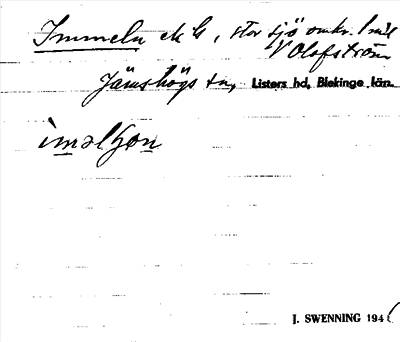 Immeln ek G, stor sjö omkr. 1 mil
V Olofström
Jämshögs sn, Listers hd, Blekinge län.
ìməlʃon
J. SWENNING 1946